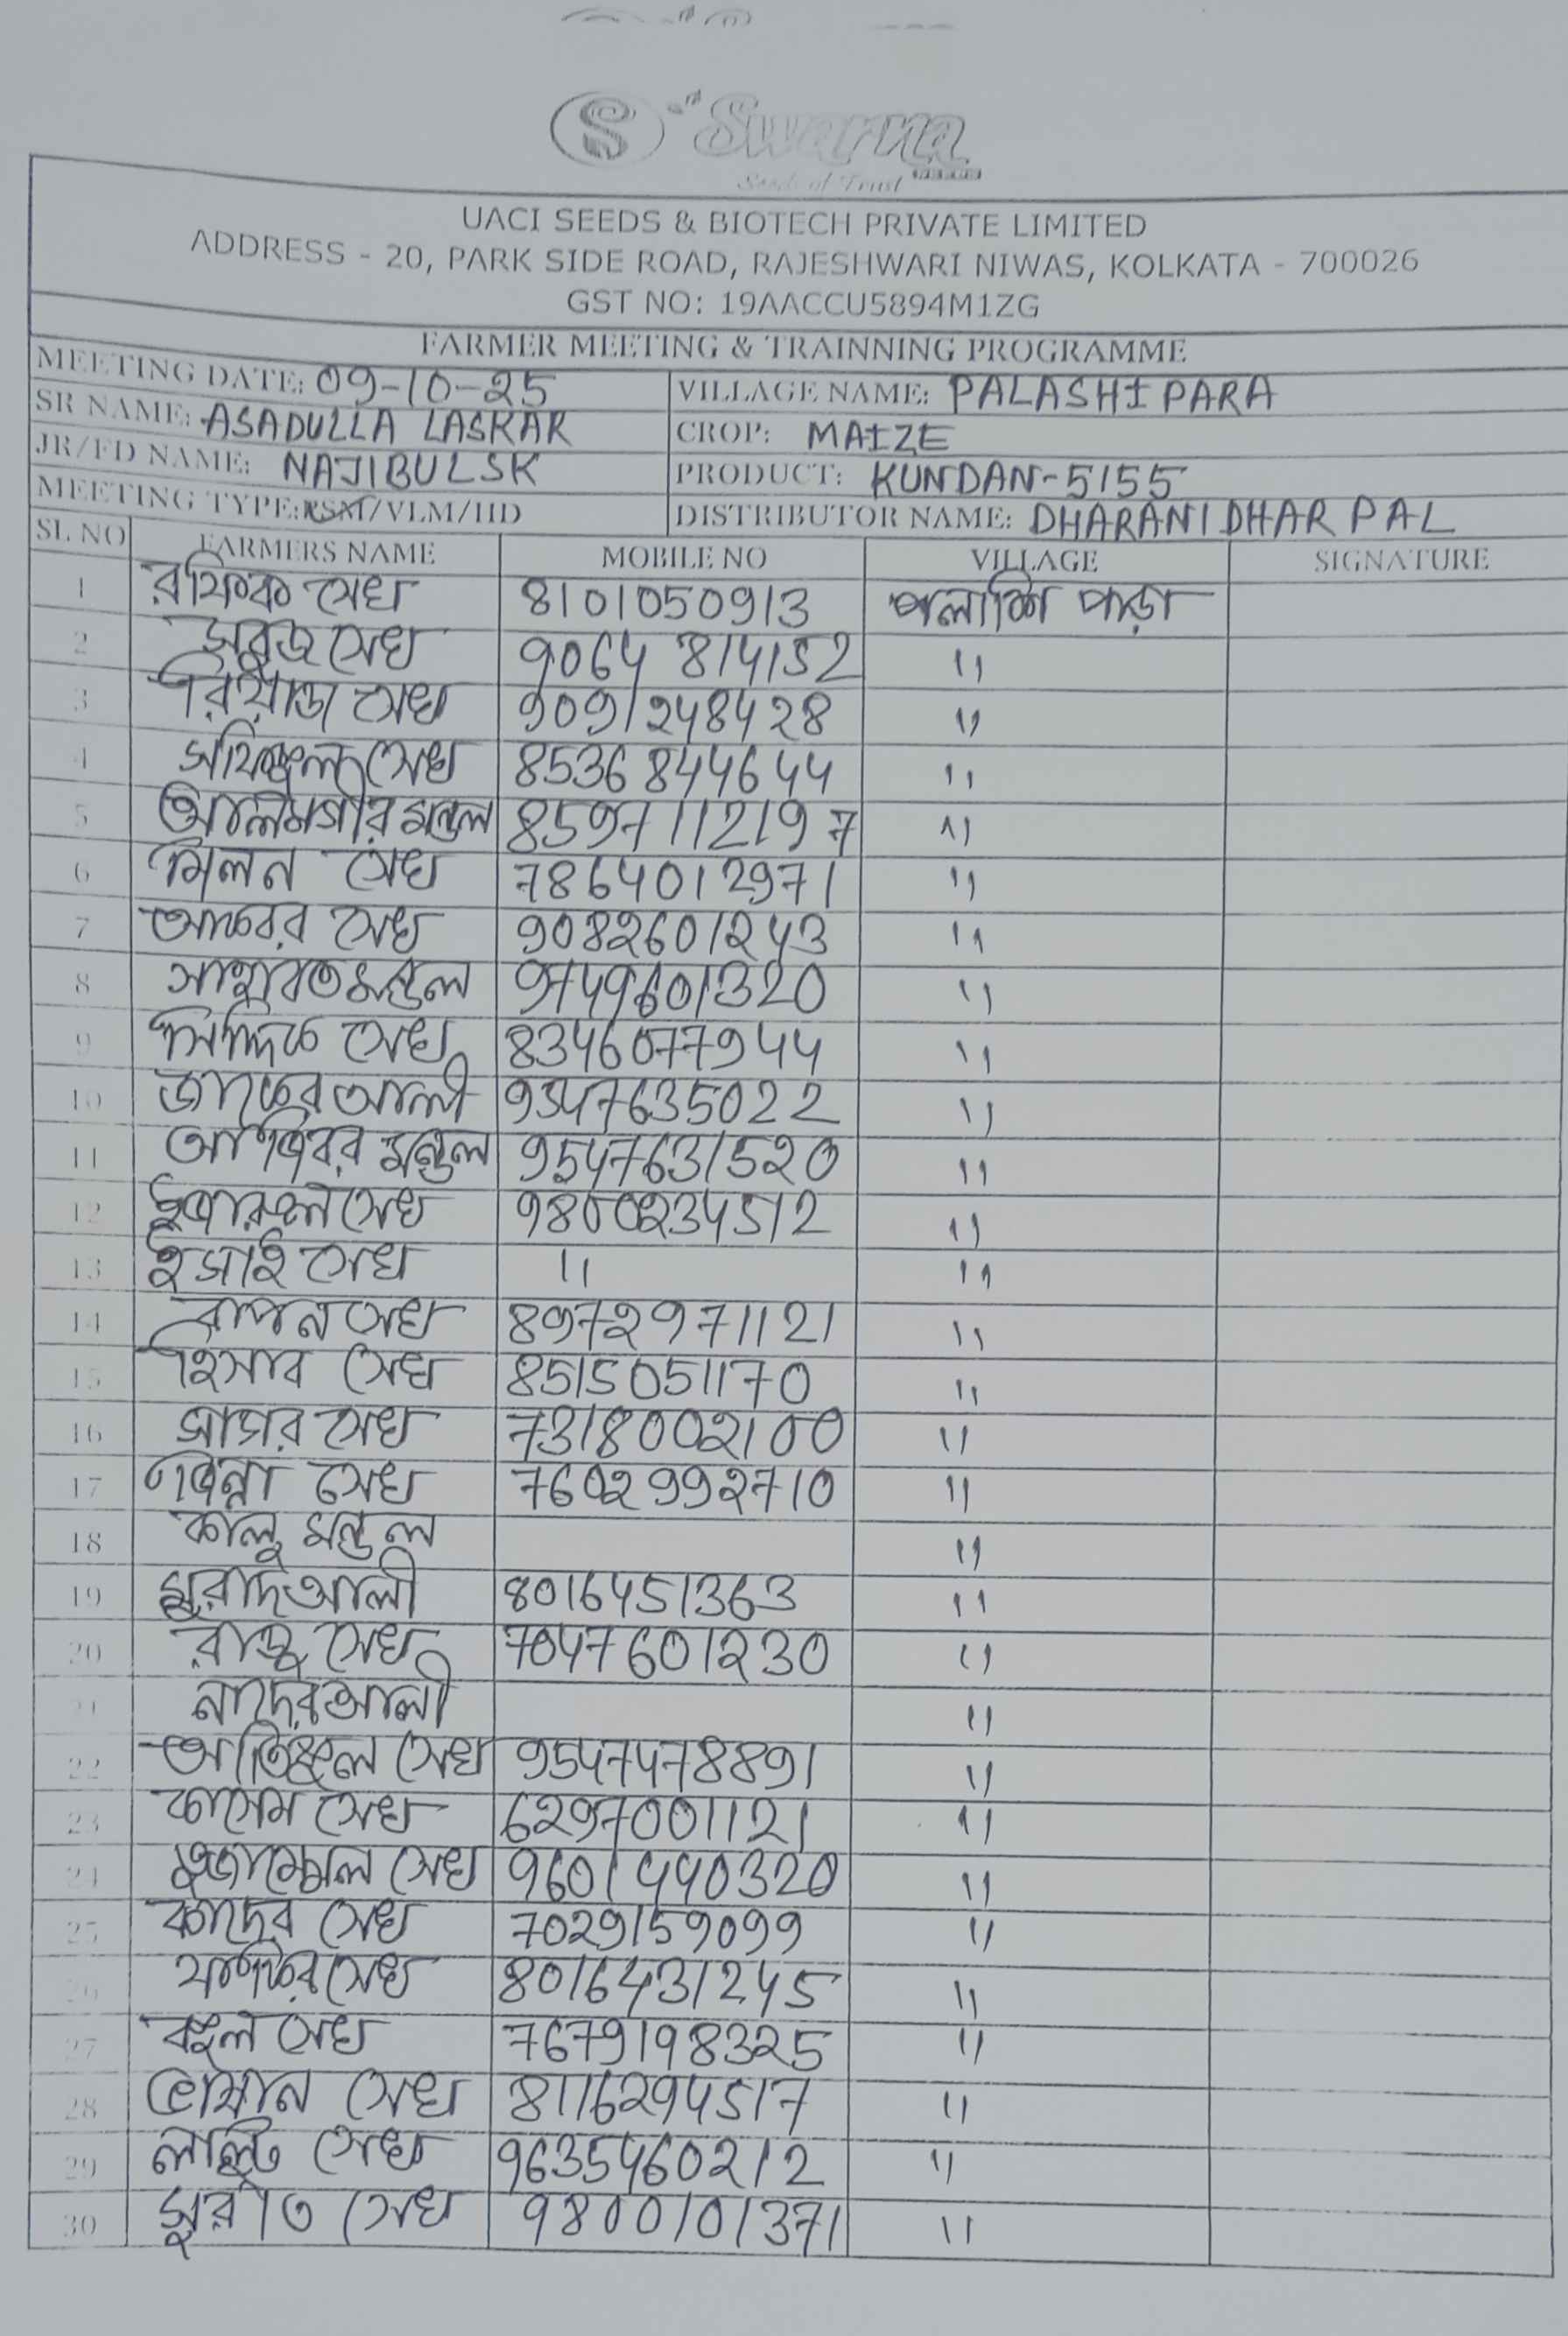 S Swarna
Seeds of Trust
UACI SEEDS & BIOTECH PRIVATE LIMITED
ADDRESS - 20, PARK SIDE ROAD, RAJESHWARI NIWAS, KOLKATA - 700026
GST NO: 19AACCU5894M1ZG
FARMER MEETING & TRAINNING PROGRAMME
MEETING DATE: 09-10-25 VILLAGE NAME: PALASHIPARA
SR NAME: ASADULLA LASKAR CROP: MAIZE
JR/FD NAME: NAJIBUL SK PRODUCT: KUNDAN-5155
MEETING TYPE: /VLM/HD DISTRIBUTOR NAME: DHARANIDHAR PAL
SL NO FARMERS NAME MOBILE NO VILLAGE SIGNATURE
1 রফিক সেখ 8101050913 পলাশি পাড়া
2 সবুজ সেখ 9064814152 "
3 রিয়াজ সেখ 9091248428 "
4 সেখ 8536844644 "
5 আলমগীর মন্ডল 8597112197 "
6 মিলন সেখ 7864012971 "
7 সেখ 9082601243 "
8 মন্ডল 9749601320 "
9 সিদ্দিক সেখ 8346077944 "
10 আলী 9547635022 "
11 মন্ডল 9547631520 "
12 সেখ 9800234512 "
13 সেখ " "
14 সেখ 8972971121 "
15 হিসাব সেখ 8515051170 "
16 সাগর সেখ 7318002100 "
17 সেখ 7602992710 "
18 কালু মন্ডল "
19 মুরাদ আলী 8016451363 "
20 রাজু সেখ 7047601230 "
21 নাদের আলী "
22 সেখ 9547478891 "
23 কাসেম সেখ 6297001121 "
24 সেখ 9601440320 "
25 কাদের সেখ 7029159099 "
26 সেখ 8016431245 "
27 সেখ 7679198325 "
28 সেখ 8116294517 "
29 লাল্টু সেখ 9635460212 "
30 সেখ 9800101371 "